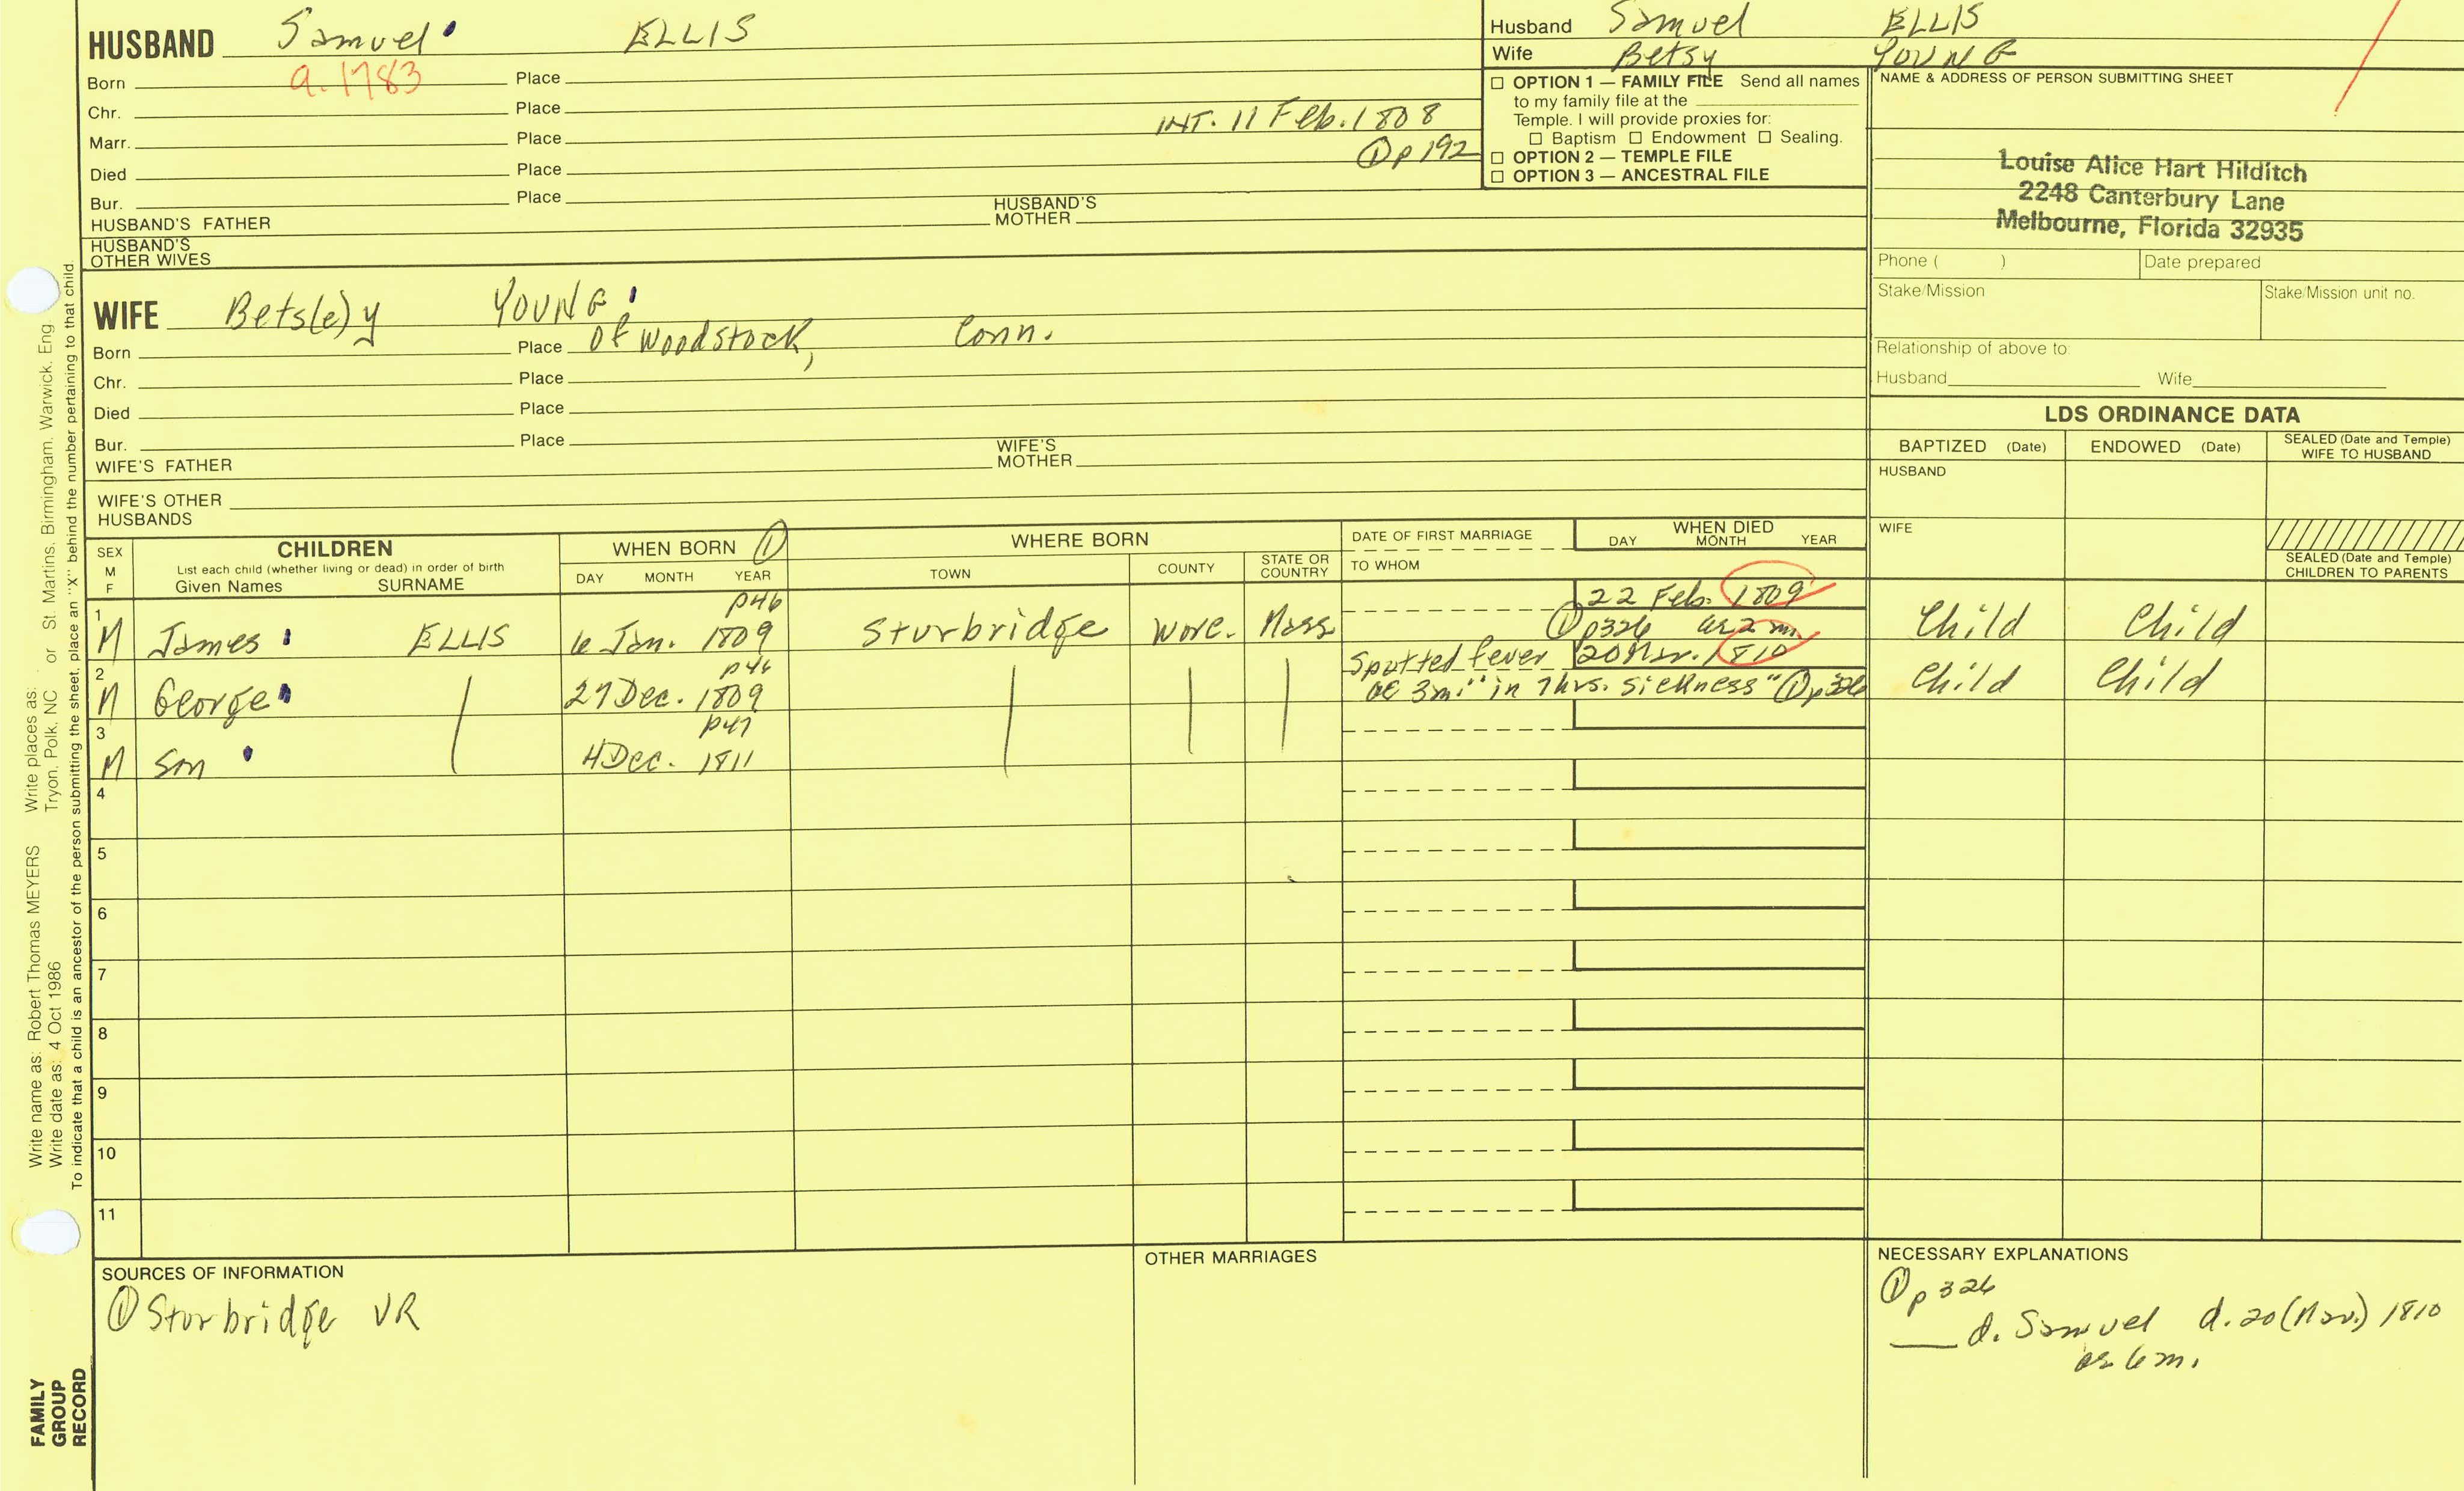 HUSBAND Samuel ELLIS
Born a. 1783 Place
Chr. Place
Marr. Place INT. 11 Feb. 1808
Died Place ① p 192
Bur. Place
HUSBAND'S FATHER HUSBAND'S MOTHER
HUSBAND'S OTHER WIVES
WIFE Bets(e)y YOUNG
Born Place Of Woodstock, Conn.
Chr. Place
Died Place
Bur. Place
WIFE'S FATHER WIFE'S MOTHER
WIFE'S OTHER HUSBANDS
Husband Samuel ELLIS
Wife Betsy YOUNG
☐ OPTION 1 — FAMILY FILE Send all names
to my family file at the
Temple. I will provide proxies for:
☐ Baptism ☐ Endowment ☐ Sealing.
☐ OPTION 2 — TEMPLE FILE
☐ OPTION 3 — ANCESTRAL FILE
NAME & ADDRESS OF PERSON SUBMITTING SHEET
Louise Alice Hart Hilditch
2248 Canterbury Lane
Melbourne, Florida 32935
Phone ( ) Date prepared
Stake/Mission Stake/Mission unit no.
Relationship of above to:
Husband Wife
LDS ORDINANCE DATA
BAPTIZED (Date) ENDOWED (Date) SEALED (Date and Temple) WIFE TO HUSBAND
HUSBAND
WIFE
SEALED (Date and Temple) CHILDREN TO PARENTS
SEX M F
CHILDREN
List each child (whether living or dead) in order of birth
Given Names SURNAME
WHEN BORN ①
DAY MONTH YEAR
WHERE BORN
TOWN COUNTY STATE OR COUNTRY
DATE OF FIRST MARRIAGE
TO WHOM
WHEN DIED
DAY MONTH YEAR
p46 22 Feb. 1809
1 M James ELLIS 6 Jan. 1809 Sturbridge Worc. Mass ① p326 ae 2 m. Child Child
p46 Spotted fever 20 Mar. 1810
2 M George 27 Dec. 1809 ae 3m. "in 7hrs. sickness" ① p326 Child Child
p47
3 M Son 4 Dec. 1811
4
5
6
7
8
9
10
11
SOURCES OF INFORMATION
① Sturbridge VR
OTHER MARRIAGES
NECESSARY EXPLANATIONS
① p 326
___ d. Samuel d. 20 (Mar.) 1810
ae 6 m.
Write name as: Robert Thomas MEYERS Write places as: . or St. Martins, Birmingham, Warwick, Eng
Write date as: 4 Oct 1986 Tryon, Polk, NC
To indicate that a child is an ancestor of the person submitting the sheet, place an "X" behind the number pertaining to that child.
FAMILY
GROUP
RECORD